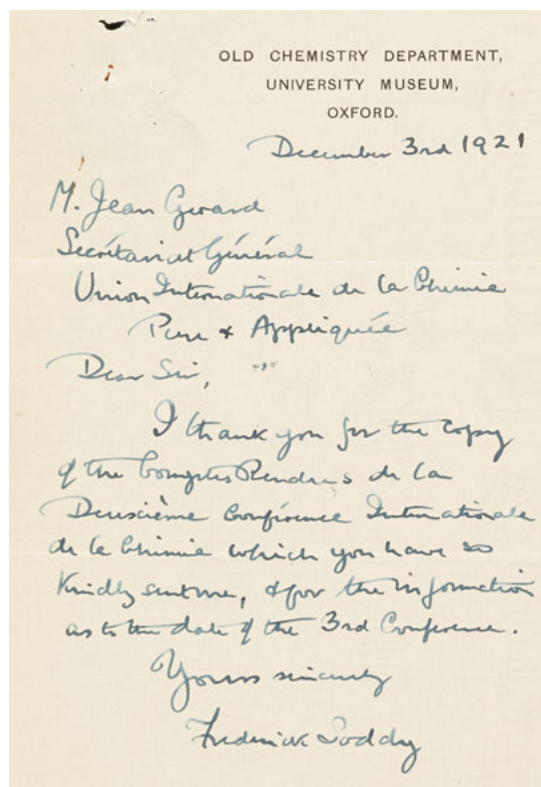 OLD CHEMISTRY DEPARTMENT,
UNIVERSITY MUSEUM,
OXFORD.
December 3rd 1921
M. Jean Gerard
Secrétariat Général
Union Internationale de la Chimie
Pure & Appliquée
Dear Sir,
I thank you for the copy
of the Comptes Rendus de la
Deuxième Conférence Internationale
de la Chimie which you have so
kindly sent me, & for the information
as to the date of the 3rd Conference.
Yours sincerely
Frederick Soddy